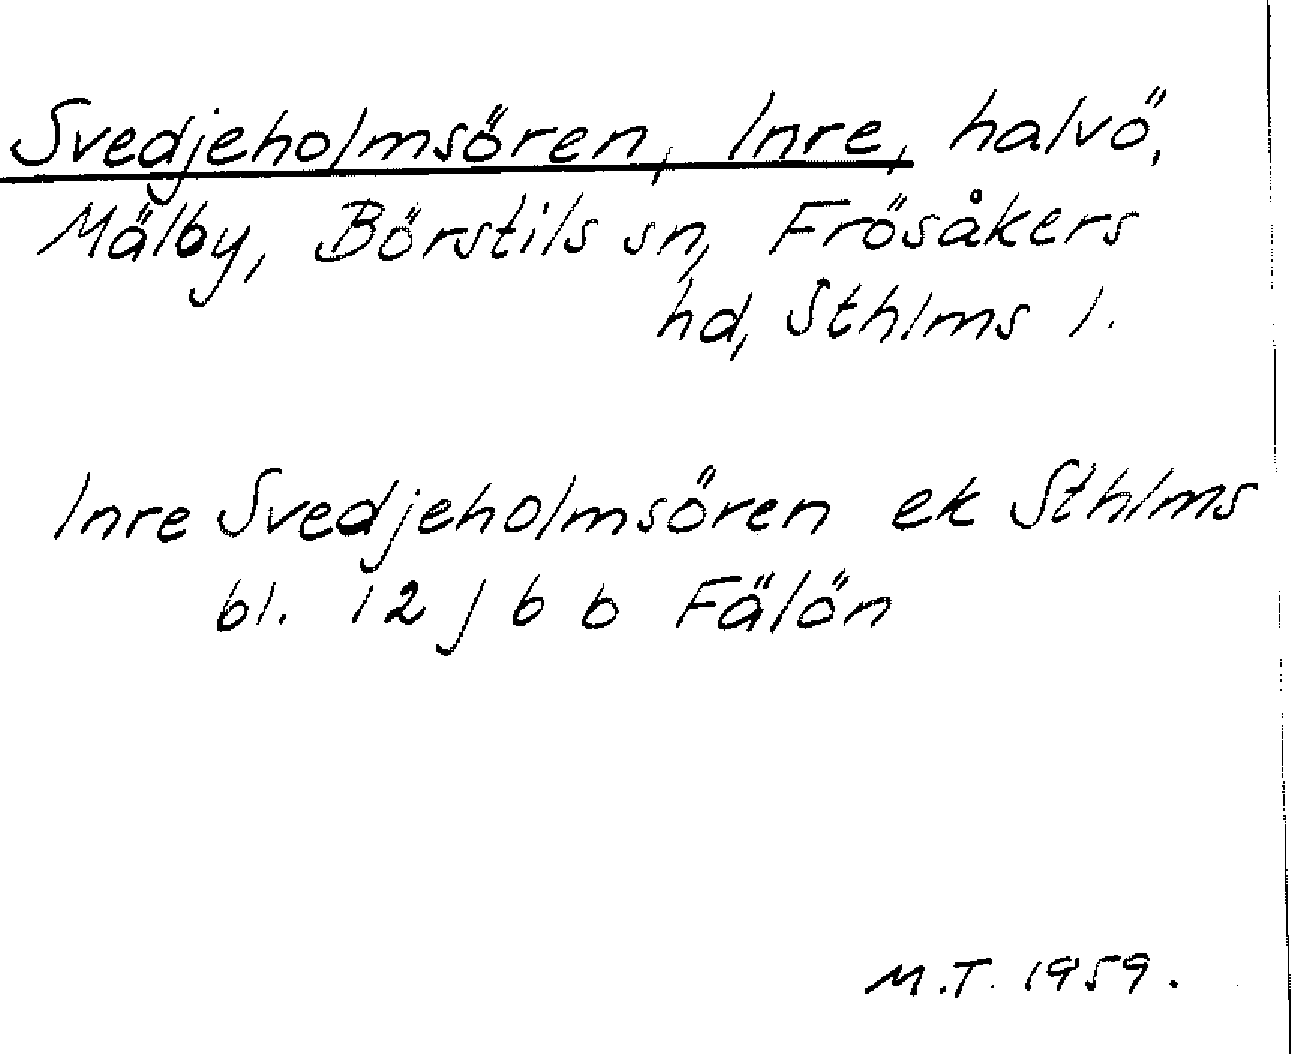 Svedjeholmsören, Inre, halvö,
Mälby, Börstils sn, Frösåkers
hd, Sthlms l.
Inre Svedjeholmsören ek Sthlms
bl. 12 J 6 b Fälön
M.T. 1959.